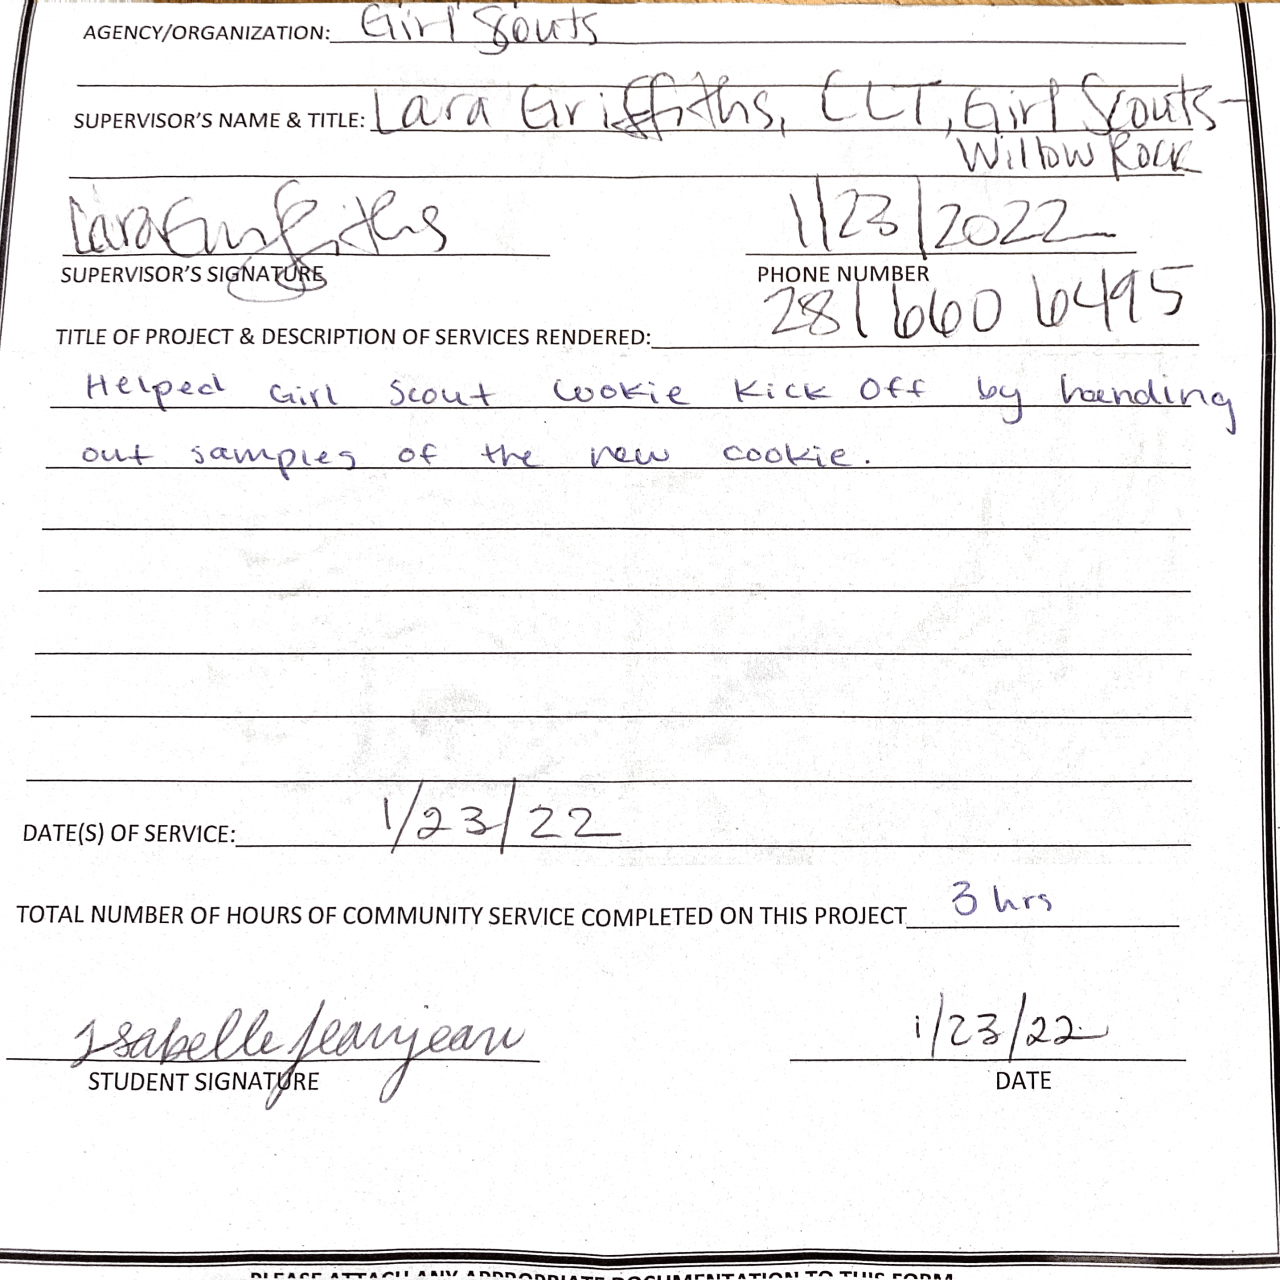 AGENCY/ORGANIZATION: Girl Scouts
SUPERVISOR'S NAME & TITLE: Lara Griffiths, CLT, Girl Scouts-
Willow Rock
Lara Griffiths 1/23/2022
SUPERVISOR'S SIGNATURE PHONE NUMBER
281 660 6495
TITLE OF PROJECT & DESCRIPTION OF SERVICES RENDERED:
Helped Girl Scout Cookie Kick Off by handing
out samples of the new cookie.
DATE(S) OF SERVICE: 1/23/22
TOTAL NUMBER OF HOURS OF COMMUNITY SERVICE COMPLETED ON THIS PROJECT 3 hrs
Isabelle Jeanjean 1/23/22
STUDENT SIGNATURE DATE
PLEASE ATTACH ANY APPROPRIATE DOCUMENTATION TO THIS FORM